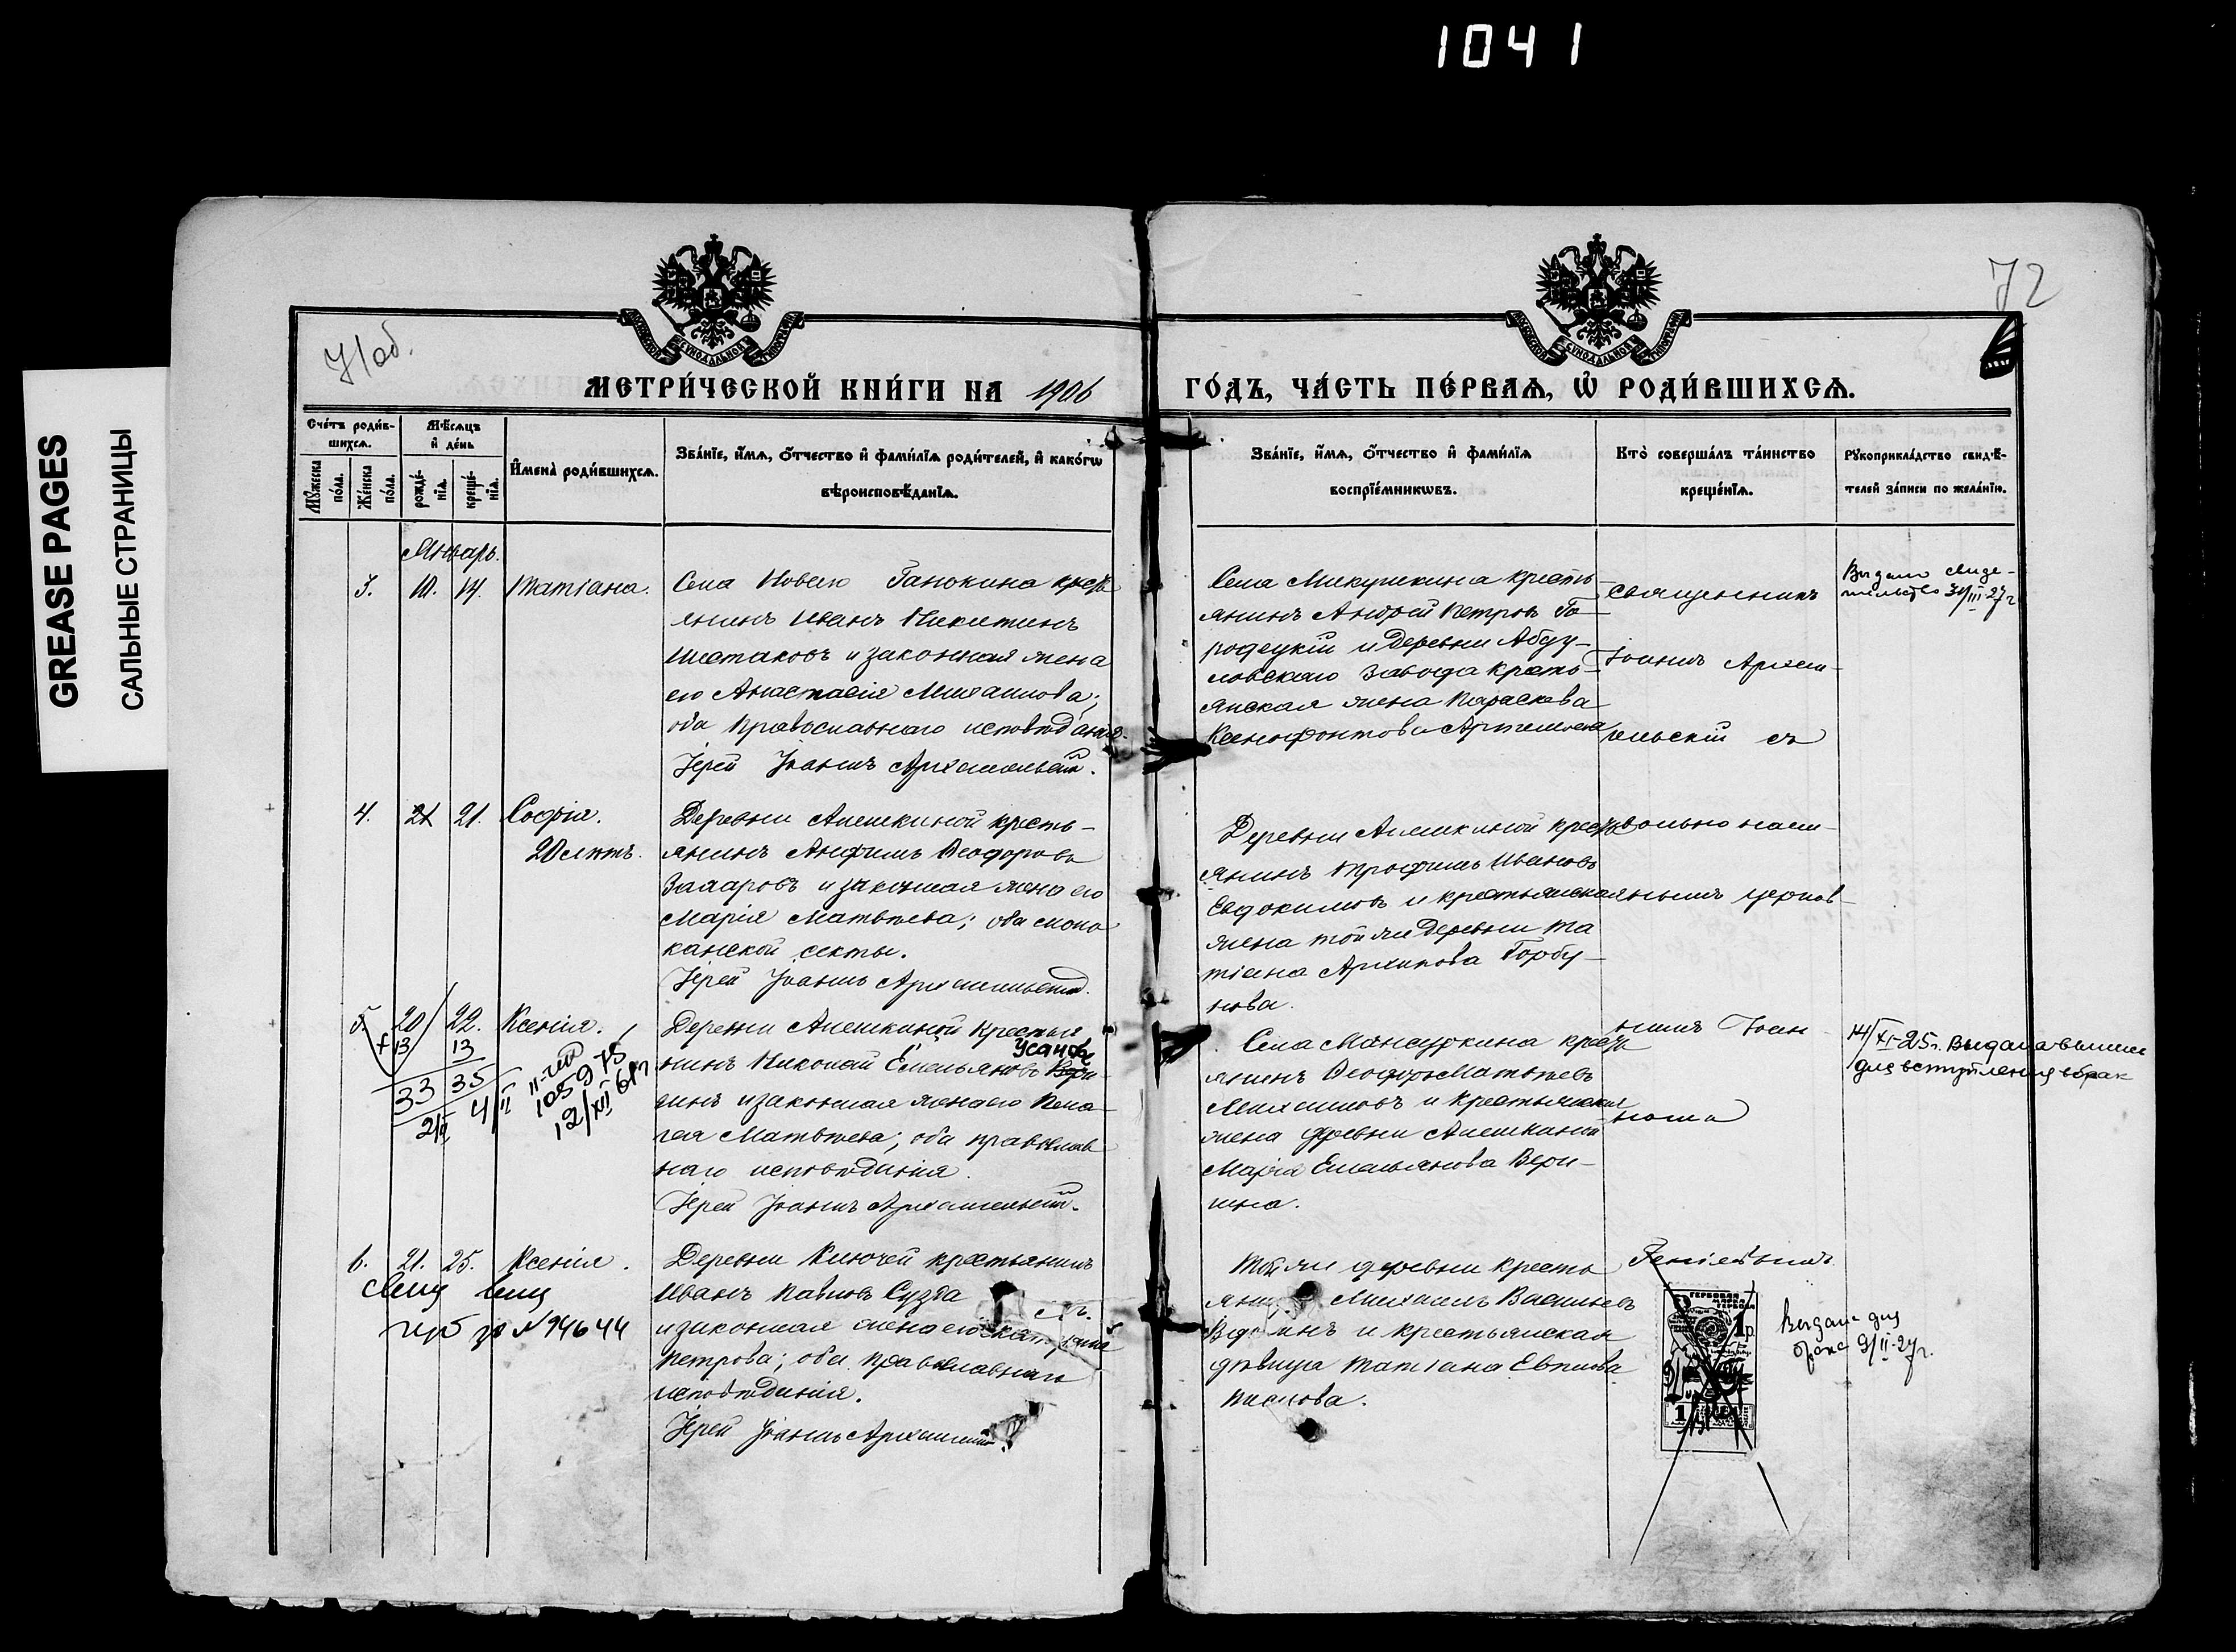 1041
GREASE PAGES
САЛЬНЫЕ СТРАНИЦЫ
71об.
72
МЕТРИ́ЧЕСКОЙ КНИ́ГИ НА 1906
ГО́ДЪ, ЧА́СТЬ ПЕ́РВАѦ, Ѽ РОДИ́ВШИХСѦ.
Сче́тъ роди́в-
шихсѧ.
Мꙋ́жеска по́ла.
Же́нска по́ла.
Мѣ́сѧцъ
и҆ де́нь
рожде́-
нїѧ.
креще́-
нїѧ.
И҆мена̀ роди́вшихсѧ.
Зва́нїе, и҆́мѧ, ѻ҆́тчество и҆ фами́лїѧ роди́телей, и҆ како́гѡ
вѣроисповѣ́данїѧ.
Зва́нїе, и҆́мѧ, ѻ҆́тчество и҆ фами́лїѧ
воспрїе́мникѡвъ.
Кто̀ соверша́лъ та́инство
креще́нїѧ.
Рꙋкоприкла́дство свидѣ́-
телей за́писи по жела́нїю.
Январь.
3.
Татіана.
Села Новаго Ганькина кресть
янинъ Иванъ Никитинъ
Шестаковъ и законная жена
его Анастасія Михаилова;
оба православнаго исповѣданія.
Іерей Іоаннъ Архангельскій.
Села Микушкина кресть
янинъ Андрей Петровъ Го
родецкій и деревни Абду-
ловскаго завода кресть-
янская жена Параскева
Ксенофонтова Артемьева
Священникъ
Іоаннъ Архан-
гельскій съ
Выдано свиде-
тельство 31/III-27г
4.
21
21.
Софія.
20 лѣтъ.
Деревни Алешкиной кресть-
янинъ Анфимъ Ѳеодоровъ
Захаровъ и законная жена его
Марія Матвѣева; оба моло
канской секты.
Іерей Іоаннъ Архангельскій.
Деревни Алешкиной кресть
янинъ Трофимъ Ивановъ
Евдокимовъ и крестьянская
жена той же деревни Та
тіана Архипова Горбу-
нова.
вольно наем-
нымъ церков-
5.
20
22.
Ксенія.
13
13
33
35
4/II
105975
12/XII 61г
Деревни Алешкиной крестья
Усанова
нинъ Николай Емельяновъ Вери-
гинъ и законная жена его Пела-
гея Матвѣева; оба православ
наго исповѣданія.
Іерей Іоаннъ Архангельскій.
Села Мансуркина кресть
янинъ Ѳеодоръ Матвѣевъ
Михаиловъ и крестьянская
жена деревни Алешкиной
Марія Емельянова Вери-
гина.
14/XI-25г. Выдана выпись
для вступления в брак
6.
21.
25.
Ксенія.
№ 94644
Деревни Ключей крестьянинъ
Иванъ Павловъ Сузда
и законная жена его Екатерина
Петрова; оба православнаго
исповѣданія.
Іерей Іоаннъ Архангельскій.
Той же деревни кресть
янинъ Михаилъ Васильевъ
и крестьянская
дѣвица Татіана Евплова
Маслова.
ГЕРБОВАЯ
МАРКА
1р.
1
Выдана для
брака 9/II-27г.